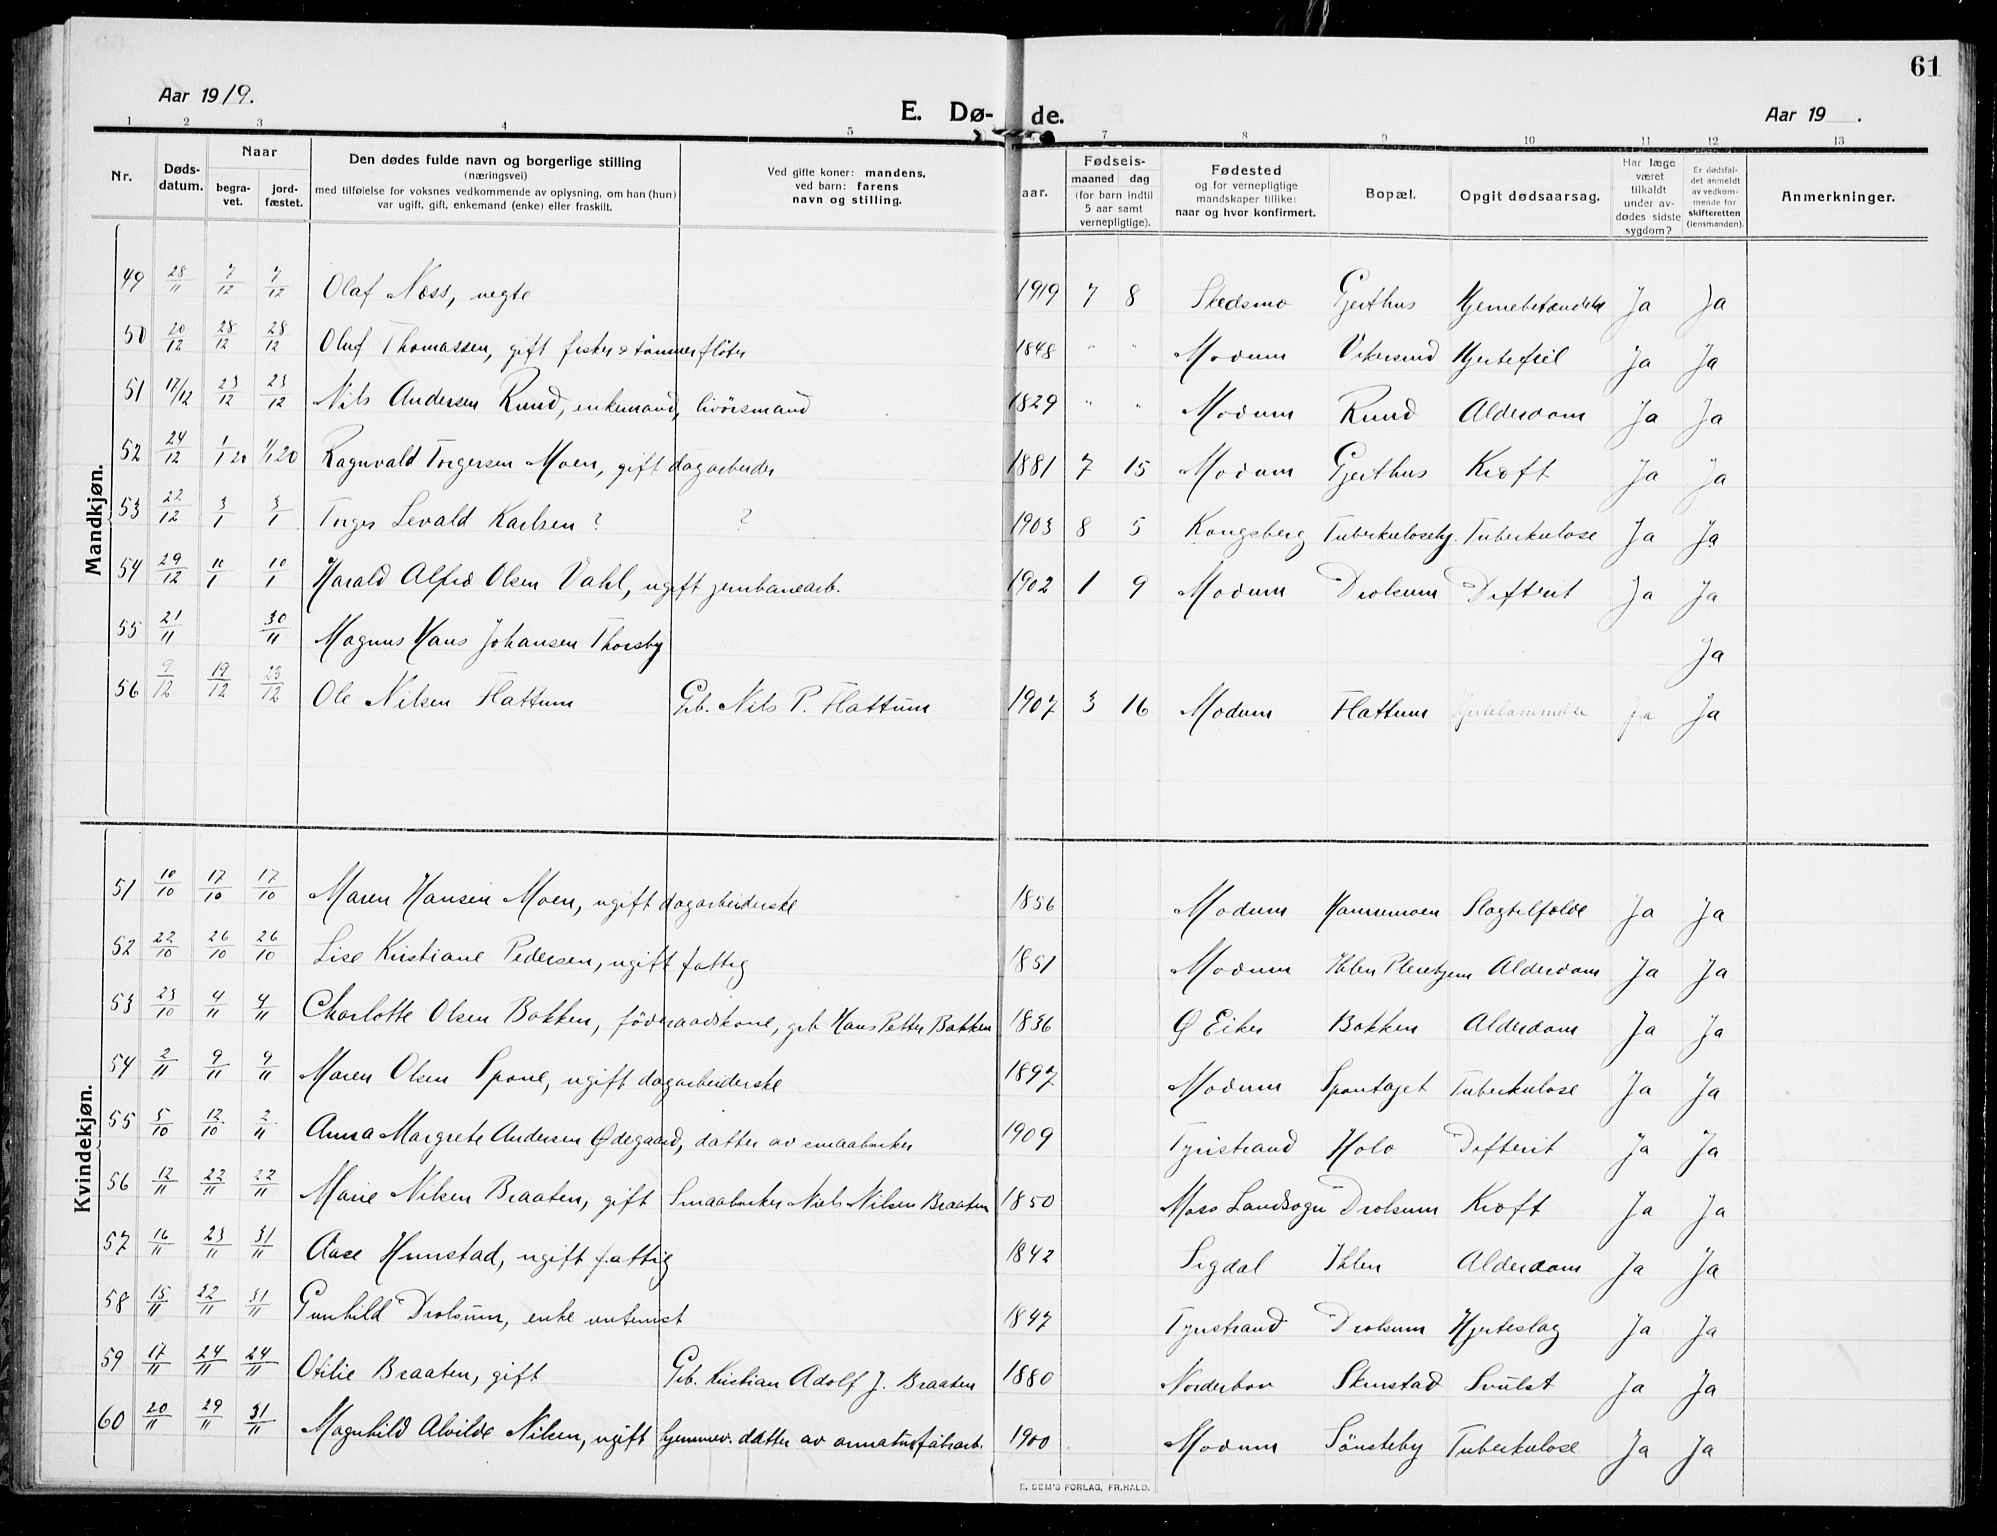 61
Aar 1919.
E. Dø- de.
Aar 19 .
1 2 3 4 5 7 8 9 10 11 12 13
Nr.
Døds-datum.
Naar
begra-vet.
jord-fæstet.
Den dødes fulde navn og borgerlige stilling
(næringsvei)
med tilføielse for voksnes vedkommende av oplysning, om han (hun)
var ugift, gift, enkemand (enke) eller fraskilt.
Ved gifte koner: mandens,
ved barn: farens
navn og stilling.
aar.
Fødsels-
maaned dag
(for barn indtil
5 aar samt
vernepligtige).
Fødested
og for vernepligtige
mandskaper tillike:
naar og hvor konfirmert.
Bopæl.
Opgit dødsaarsag.
Har læge
været
tilkaldt
under av-
dødes sidste
sygdom?
Er dødsfal-
det anmeldt
av vedkom-
mende for
skifteretten
(lensmanden).
Anmerkninger.
Mandkjøn.
49 28/11 7/12 7/12 Olaf Næss, uegte 1919 7 8 Skedsmo Gjerthus Hjernebetændelse Ja Ja
50 20/12 28/12 28/12 Oluf Thomassen, gift fisker & tømmerfløter 1848 " " Modum Vikersund Hjertefeil Ja Ja
51 17/12 23/12 23/12 Nils Andersen Rund, enkemand, livørsmand 1829 " " Modum Rund Alderdom Ja Ja
52 24/12 1/1 20 1/1 20 Ragnvald Torgersen Moen, gift dagarbeider 1881 7 15 Modum Gjerthus Kræft Ja Ja
53 22/12 3/1 3/1 Torger Sevald Karlsen ? ? 1903 8 5 Kongsberg Tuberkulosehj. Tuberkulose Ja Ja
54 29/12 10/1 10/1 Harald Alfred Olsen Vahl, ugift jernbanearb. 1902 1 9 Modum Drolsum Difterit Ja Ja
55 21/11 30/11 Magnus Hans Johansen Thorsby Ja
56 9/12 19/12 23/12 Ole Nilsen Flattum Grb. Nils P. Flattum 1907 3 16 Modum Flattum Hjertelammelse ja Ja
Kvindekjøn.
51 10/10 17/10 17/10 Maren Hansen Moen, ugift dagarbeiderske 1856 Modum Hannemoen Slagtilfælde Ja Ja
52 22/10 26/10 26/10 Lise Kristiane Pedersen, ugift fattig 1851 Modum Ihlen Pleiehjem Alderdom Ja Ja
53 23/10 4/11 4/11 Charlotte Olsen Bakken, føderaadskone, grb Hans Petter Bakken 1836 Ø Eiker Bakken Alderdom Ja Ja
54 2/11 9/11 9/11 Maren Olsen Spone, ugift dagarbeiderske 1897 Modum Sponeteiet Tuberkulose Ja Ja
55 5/10 12/10 2/11 Anna Margrete Andersen Ødegaard, datter av smaabruker 1909 Tyristrand Holo Difterit Ja Ja
56 12/11 22/11 22/11 Marie Nilsen Braaten, gift Smaabruker Niels Nilsen Braaten 1850 Moss Landsogn Drolsum Kræft Ja Ja
57 16/11 23/11 31/11 Aase Hunstad, ugift fattig 1842 Sigdal Ihlen Alderdom Ja Ja
58 15/11 22/11 31/11 Gunhild Drolsum, enke rentenist 1847 Tyristrand Drolsum Hjerteslag Ja Ja
59 17/11 24/11 24/11 Otilie Braaten, gift Grb. Kristian Adolf J. Braaten 1880 Norderhov Skinstad Svulst Ja Ja
60 20/11 29/11 31/11 Magnhild Alvilde Nilsen, ugift hjemmev. datter av armaturfabrarb. 1900 Modum Sønsteby Tuberkulose Ja Ja
E. SEM'S FORLAG, FR.HALD.